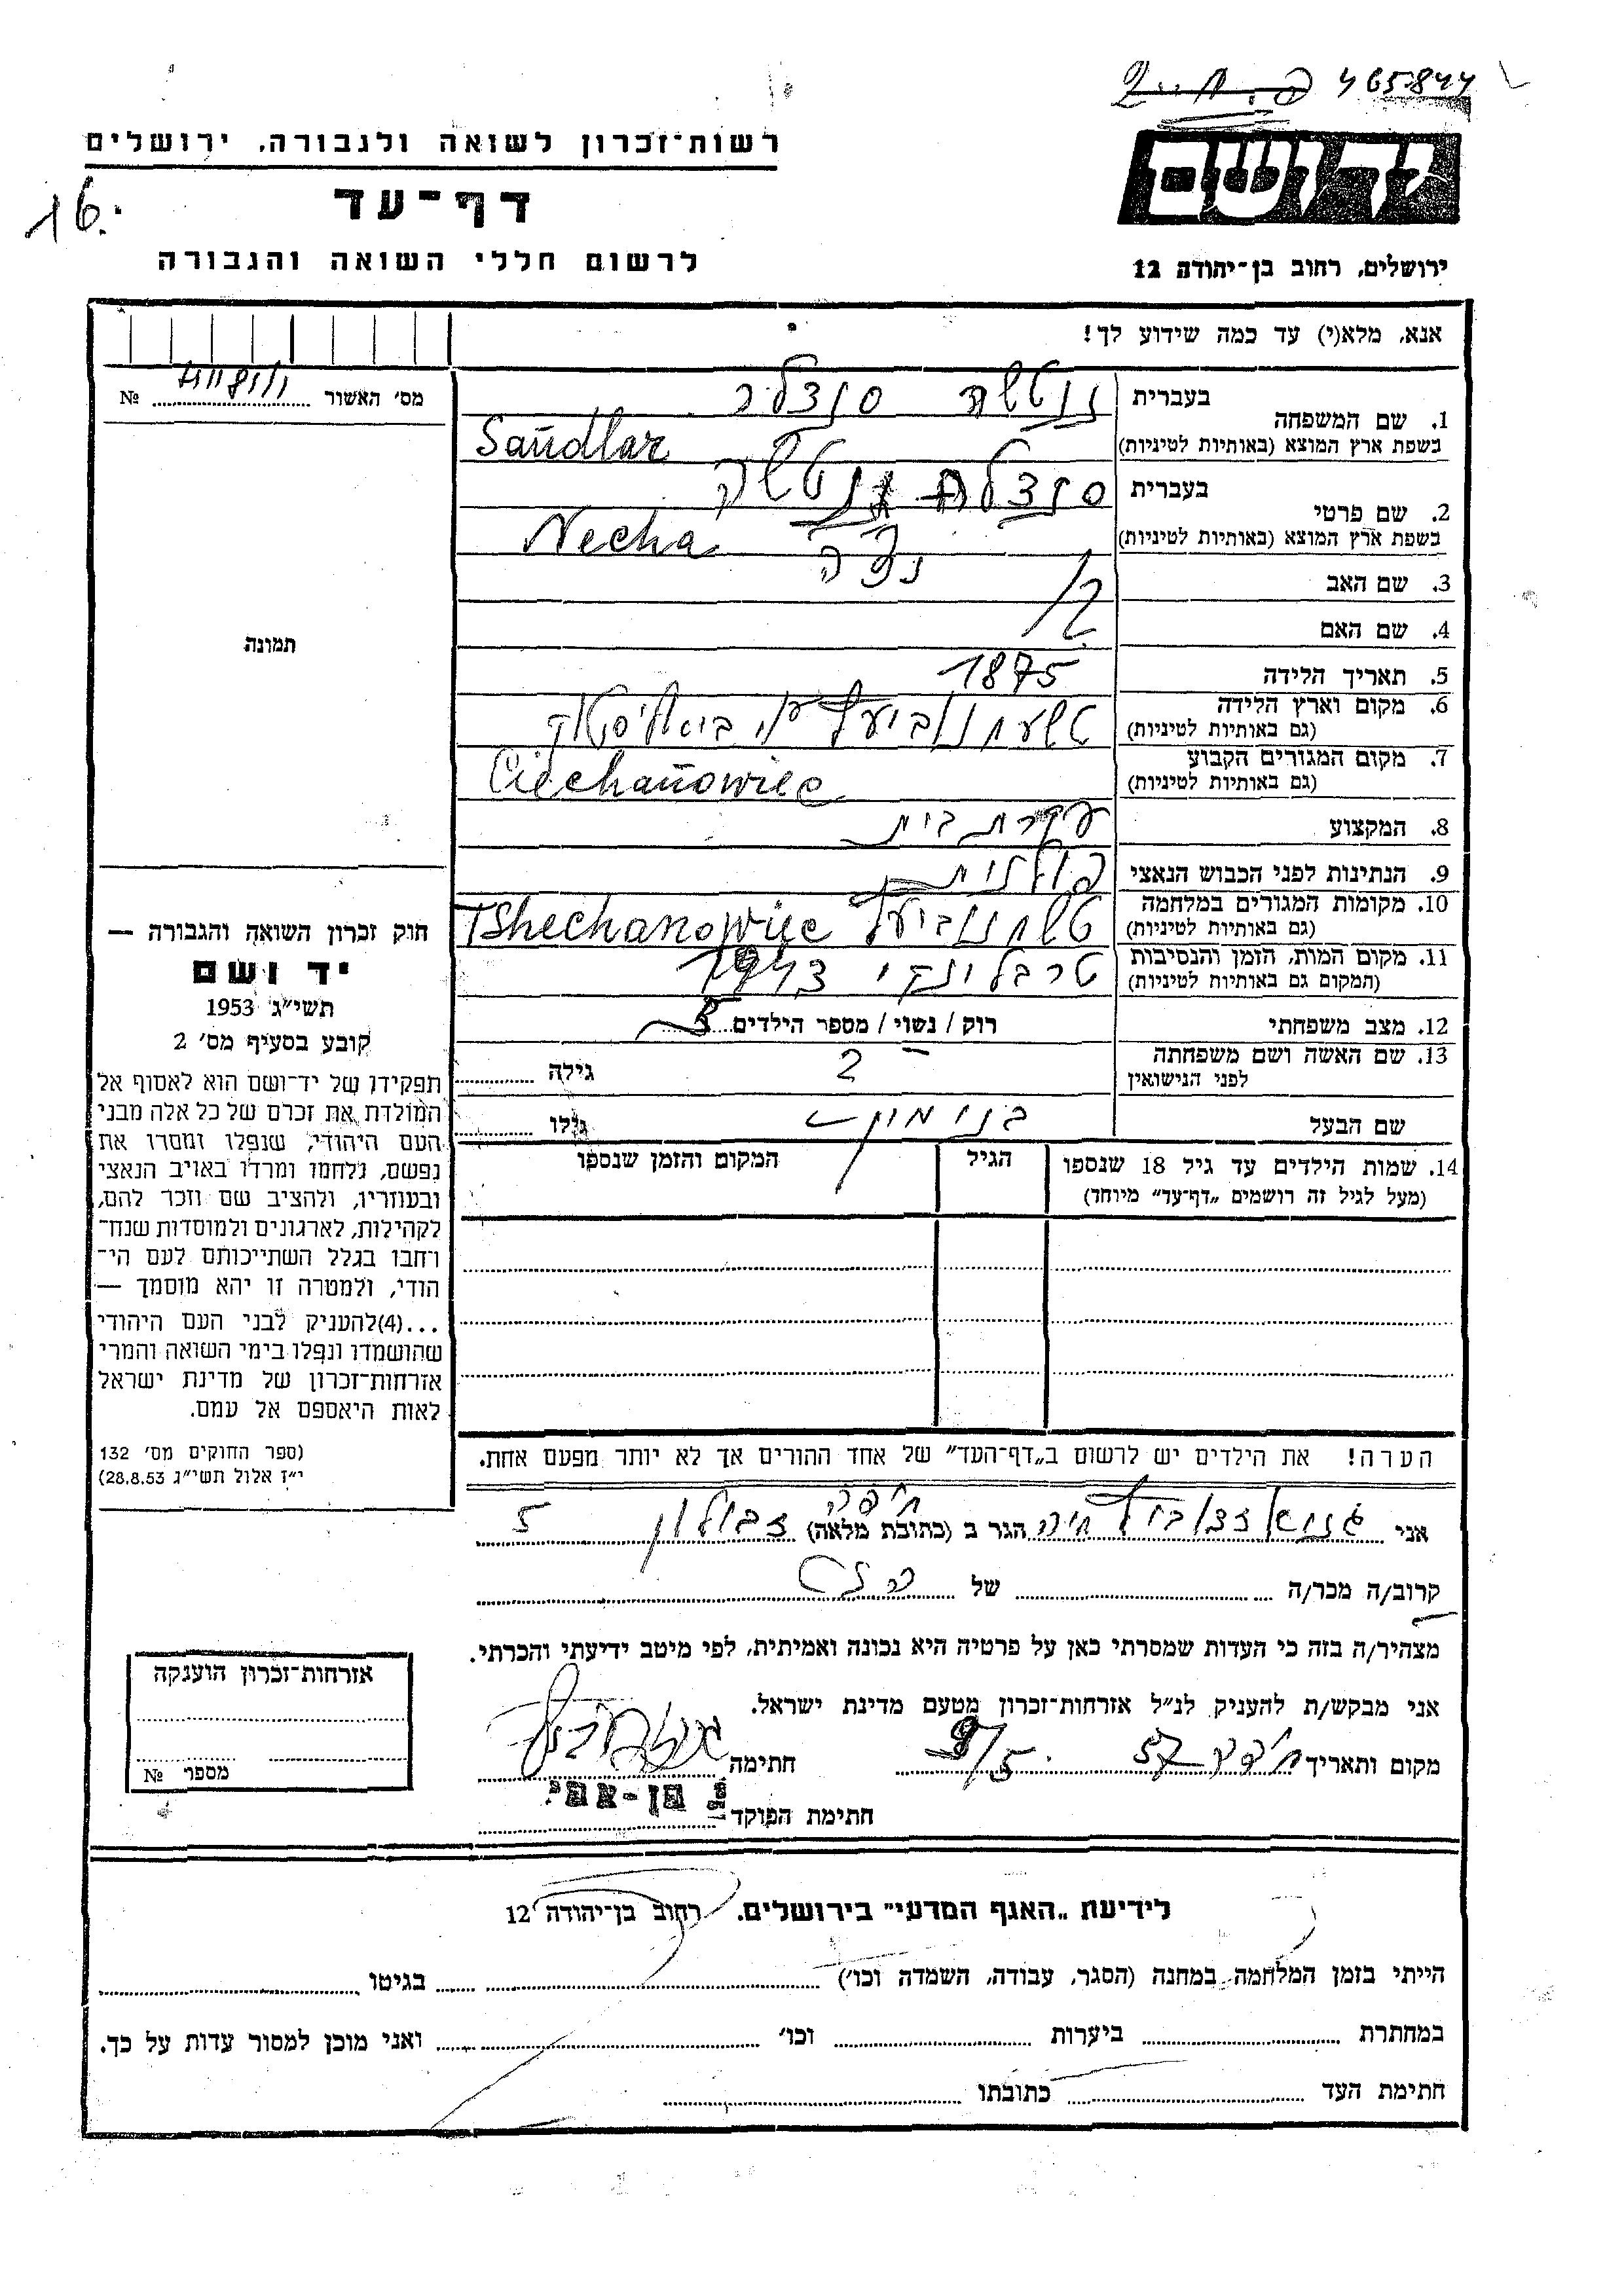 465844
יד ושם
רשות־זכרון לשואה ולגבורה, ירושלים
דף־עד
16.
לרשום חללי השואה והגבורה
ירושלים, רחוב בן־יהודה 12
אנא, מלא(י) עד כמה שידוע לך!
מס' האשור № 
1. שם המשפחה
בעברית סנדלר
בשפת ארץ המוצא (באותיות לטיניות) Sandlar
2. שם פרטי
בעברית
בשפת ארץ המוצא (באותיות לטיניות) Necha
3. שם האב
4. שם האם
5. תאריך הלידה 1875
6. מקום וארץ הלידה
(גם באותיות לטיניות)
7. מקום המגורים הקבוע Ciechanowiec
(גם באותיות לטיניות)
8. המקצוע עקרת בית
9. הנתינות לפני הכבוש הנאצי
10. מקומות המגורים במלחמה Tshechanowiec
(גם באותיות לטיניות)
11. מקום המות, הזמן והנסיבות 1943
(המקום גם באותיות לטיניות)
12. מצב משפחתי רוק / נשוי / מספר הילדים
13. שם האשה ושם משפחתה 2 גילה
לפני הנישואין
שם הבעל גילו
14. שמות הילדים עד גיל 18 שנספו הגיל המקום והזמן שנספו
(מעל לגיל זה רושמים „דף־עד” מיוחד)
תמונה
חוק זכרון השואה והגבורה —
יד ושם
תשי״ג 1953
קובע בסעיף מס' 2
תפקידו של יד־ושם הוא לאסוף אל
המולדת את זכרם של כל אלה מבני
העם היהודי, שנפלו ומסרו את
נפשם, נלחמו ומרדו באויב הנאצי
ובעוזריו, ולהציב שם וזכר להם,
לקהילות, לארגונים ולמוסדות שנח־
רחבו בגלל השתייכותם לעם הי־
הודי, ולמטרה זו יהא מוסמך —
...(4) להעניק לבני העם היהודי
שהושמדו ונפלו בימי השואה והמרי
אזרחות־זכרון של מדינת ישראל
לאות היאספם אל עמם.
(ספר החוקים מס' 132
י״ז אלול תשי״ג 28.8.53)
הערה! את הילדים יש לרשום ב„דף־העד” של אחד ההורים אך לא יותר מפעם אחת.
חיפה
אני חיה הגר ב (כתובת מלאה) זבולון 5
קרוב/ה מכר/ה של
מצהיר/ה בזה כי העדות שמסרתי כאן על פרטיה היא נכונה ואמיתית, לפי מיטב ידיעתי והכרתי.
אני מבקש/ת להעניק לנ״ל אזרחות־זכרון מטעם מדינת ישראל.
מקום ותאריך חיפה 57 9/5 חתימה
חתימת הפוקד
אזרחות־זכרון הוענקה
מספר №
לידיעת „האגף המדעי” בירושלים, רחוב בן־יהודה 12
הייתי בזמן המלחמה במחנה (הסגר, עבודה, השמדה וכו') בגיטו
במחתרת ביערות וכו' ואני מוכן למסור עדות על כך.
חתימת העד כתובתו